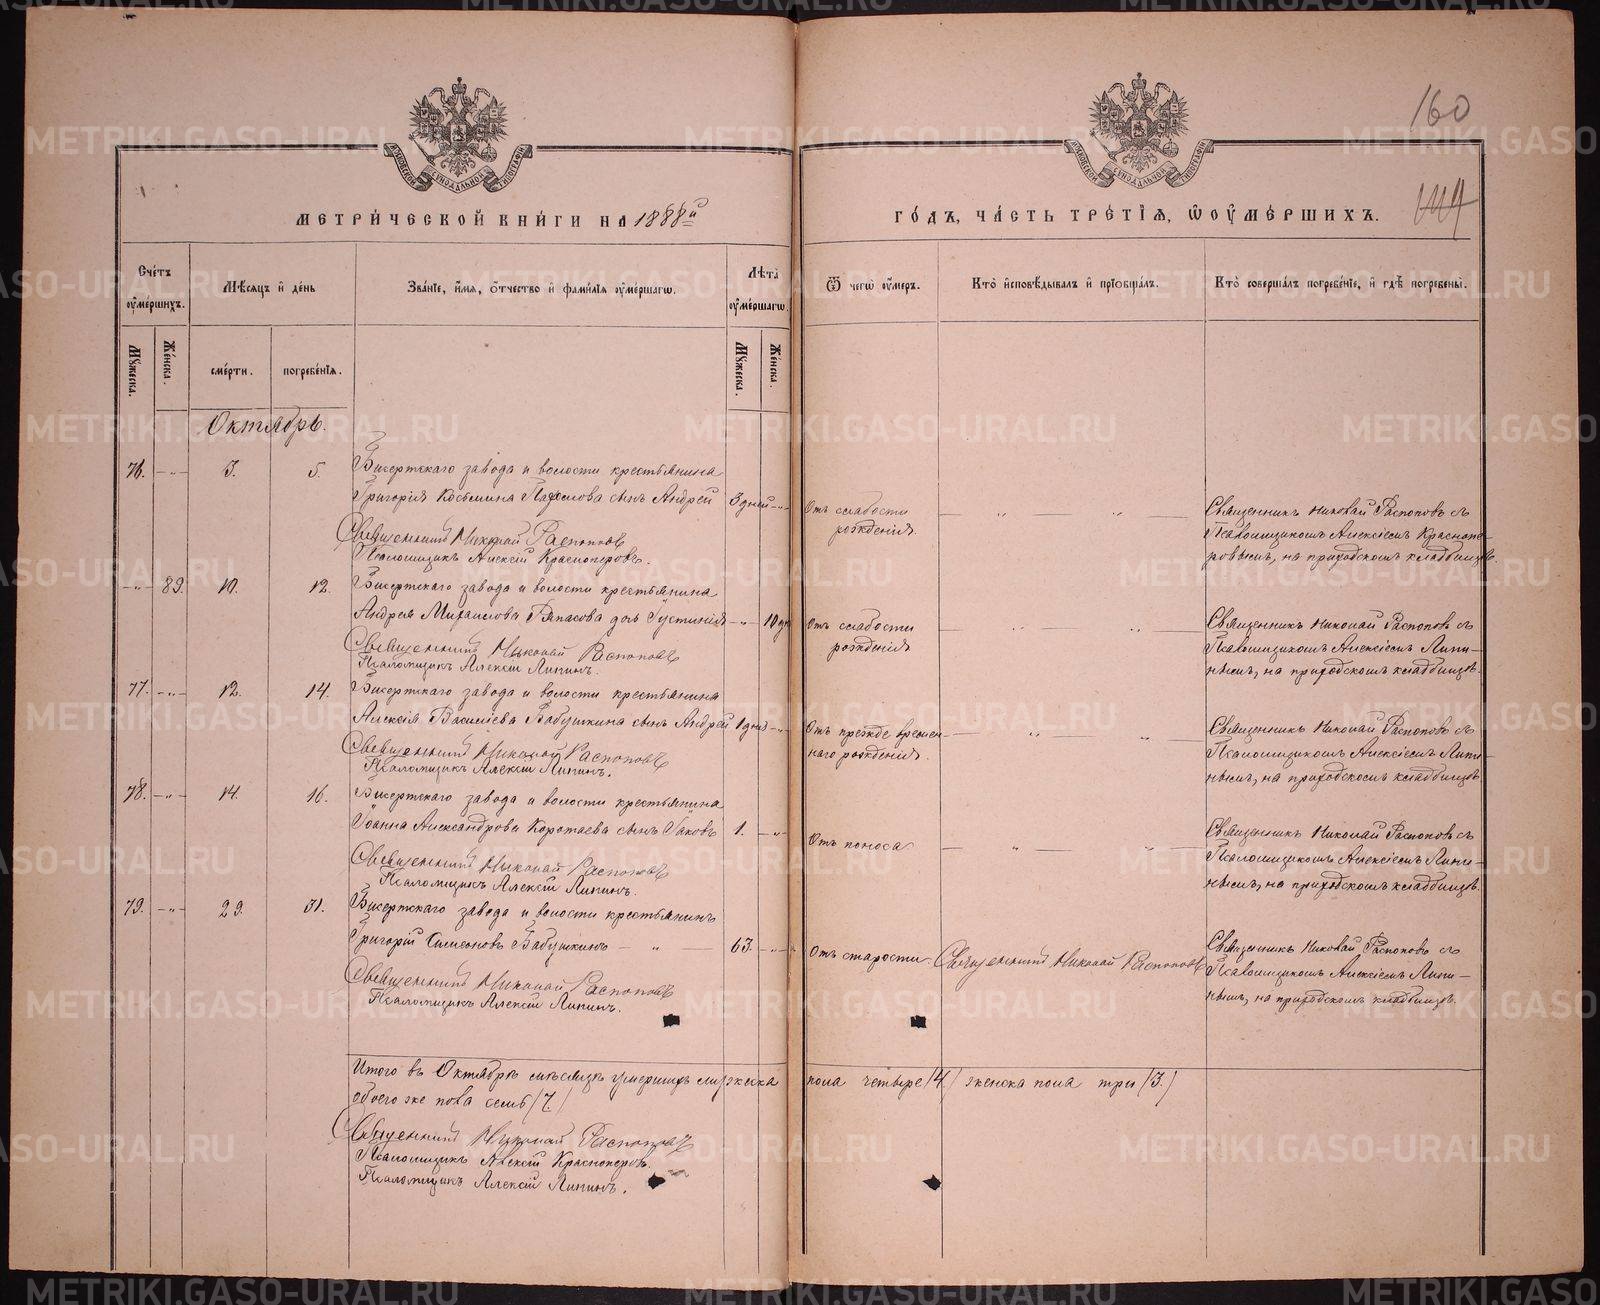 160
МЕТРИЧЕСКОЙ КНИГИ НА 1888й
ГОДЪ, ЧАСТЬ ТРЕТІЯ, Ѿ ОУМЕРШИХЪ.
Счетъ оумершихъ.
Мѣсяцъ и день
Званіе, имя, отчество и фамилія оумершагѡ.
Лѣта оумершагѡ.
Ѿ чегѡ оумеръ.
Кто исповѣдывалъ и пріобщалъ.
Кто совершалъ погребеніе, и гдѣ погребены.
Мужеска.
Женска.
смерти.
погребенія.
Мужеска.
Женска.
Октябрь.
76. 3. 5. Бисертскаго завода и волости крестьянина
Григорія Косьмина сынъ Андрей 3 дней
Отъ слабости рожденія
Священникъ Николай Распоповъ съ
Псаломщикомъ Алексіемъ Краснопе-
ровымъ, на приходскомъ кладбищѣ.
Священникъ Николай Распоповъ
Псаломщикъ Алексій Красноперовъ.
83. 10. 12. Бисертскаго завода и волости крестьянина
Андрея Михаилова дочь Густинія 10 дн
Отъ слабости рожденія
Священникъ Николай Распоповъ съ
Псаломщикомъ Алексіемъ Липи-
нымъ, на приходскомъ кладбищѣ.
Священникъ Николай Распоповъ
Псаломщикъ Алексій Липинъ.
77. 12. 14. Бисертскаго завода и волости крестьянина
Алексія Василіева Бабушкина сынъ Андрей 1 дня
Отъ прежде времен-
наго рожденія.
Священникъ Николай Распоповъ съ
Псаломщикомъ Алексіемъ Липи-
нымъ, на приходскомъ кладбищѣ
Священникъ Николай Распоповъ
Псаломщикъ Алексій Липинъ.
78. 14. 16. Бисертскаго завода и волости крестьянина
Іоанна Александрова Коротаева сынъ Іаковъ 1.
Отъ поноса
Священникъ Николай Распоповъ съ
Псаломщикомъ Алексіемъ Липи-
нымъ, на приходскомъ кладбищѣ.
Священникъ Николай Распоповъ
Псаломщикъ Алексій Липинъ.
79. 29. 31. Бисертскаго завода и волости крестьянинъ
Григорій Симеоновъ Бабушкинъ 63.
Отъ старости. Священникъ Николай Распоповъ
Священникъ Николай Распоповъ съ
Псаломщикомъ Алексіемъ Липи-
нымъ, на приходскомъ кладбищѣ.
Священникъ Николай Распоповъ
Псаломщикъ Алексій Липинъ.
Итого въ Октябрѣ мѣсяцѣ умершихъ мужеска пола четыре /4./ женска пола три /3./
обоего же пола семь /7./
Священникъ Николай Распоповъ
Псаломщикъ Алексій Красноперовъ.
Псаломщикъ Алексій Липинъ.
METRIKI.GASO-URAL.RU